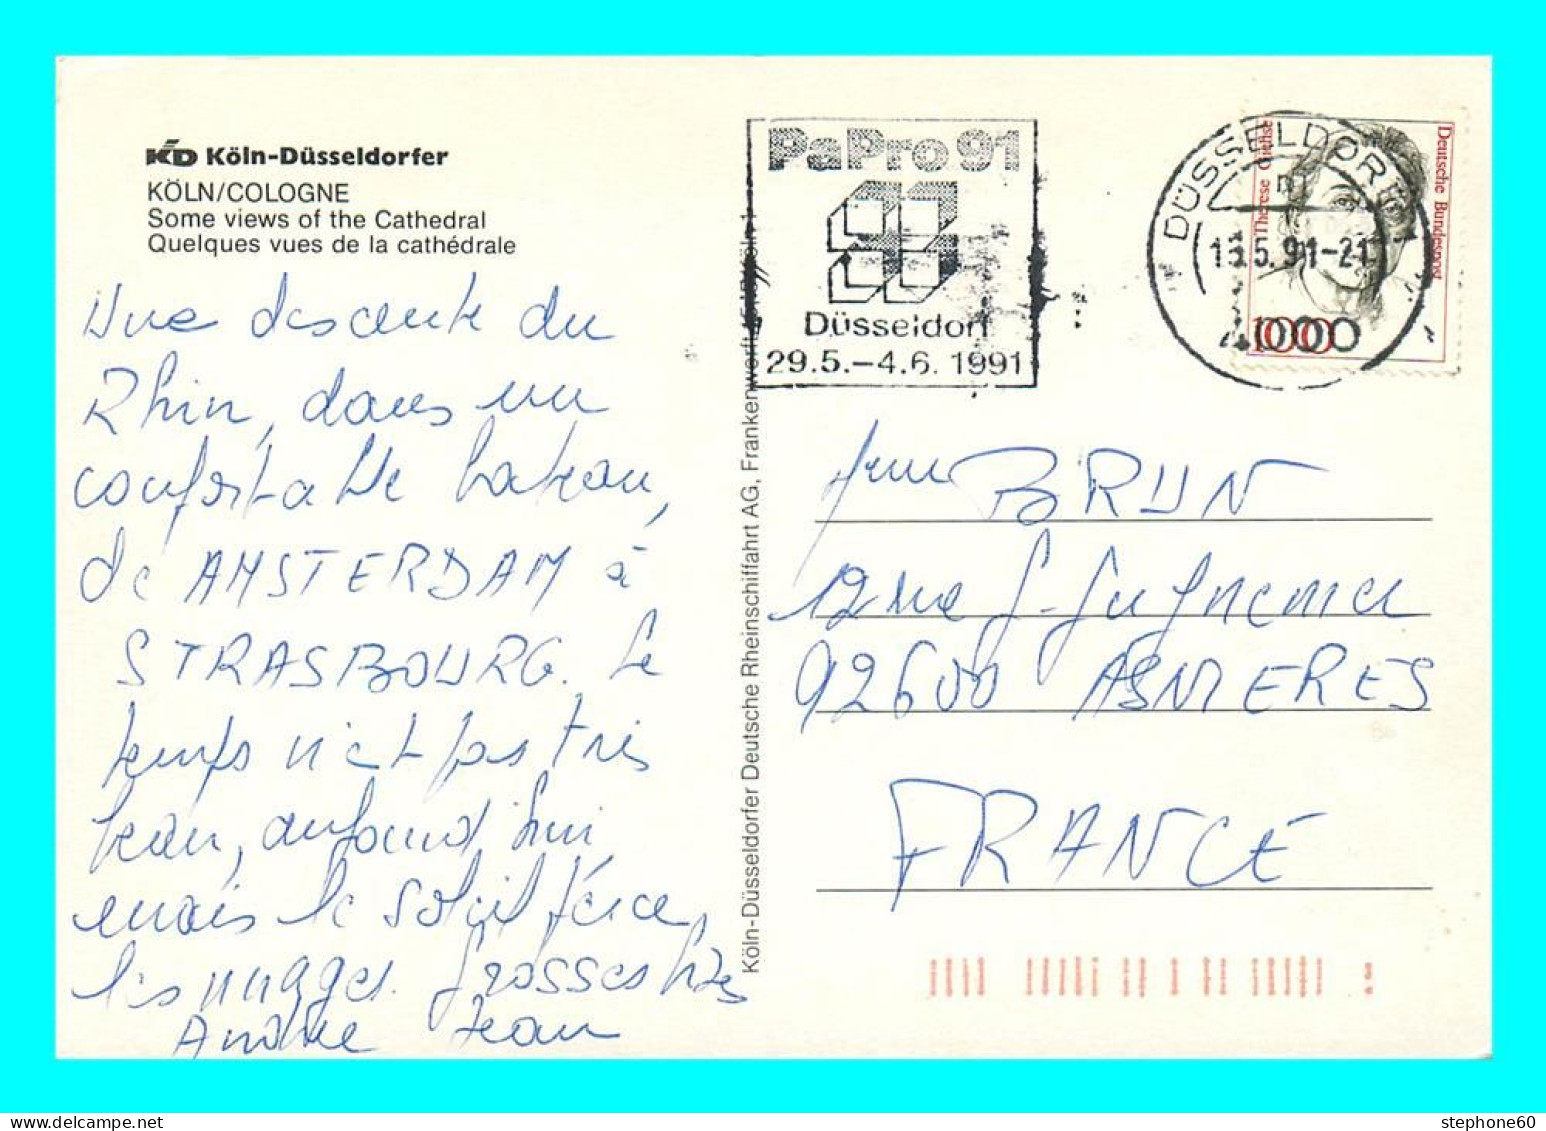 KD Köln-Düsseldorfer
KÖLN/COLOGNE
Some views of the Cathedral
Quelques vues de la cathédrale
Une descente du
Rhin, dans un
confortable bateau,
de AMSTERDAM à
STRASBOURG. Le
temps n'est pas très
beau, aujourd'hui
mais le soleil perce
les nuages. Grosses bises
Andrée Jean
Köln-Düsseldorfer Deutsche Rheinschiffahrt AG, Frankenwerft
PaPro 91
Düsseldorf
29.5.–4.6. 1991
DÜSSELDORF 1
5.91-21
4000
Therese Giehse
Deutsche Bundespost
100
BRUN
12 rue G.
92600 ASNIERES
FRANCE
stephone60